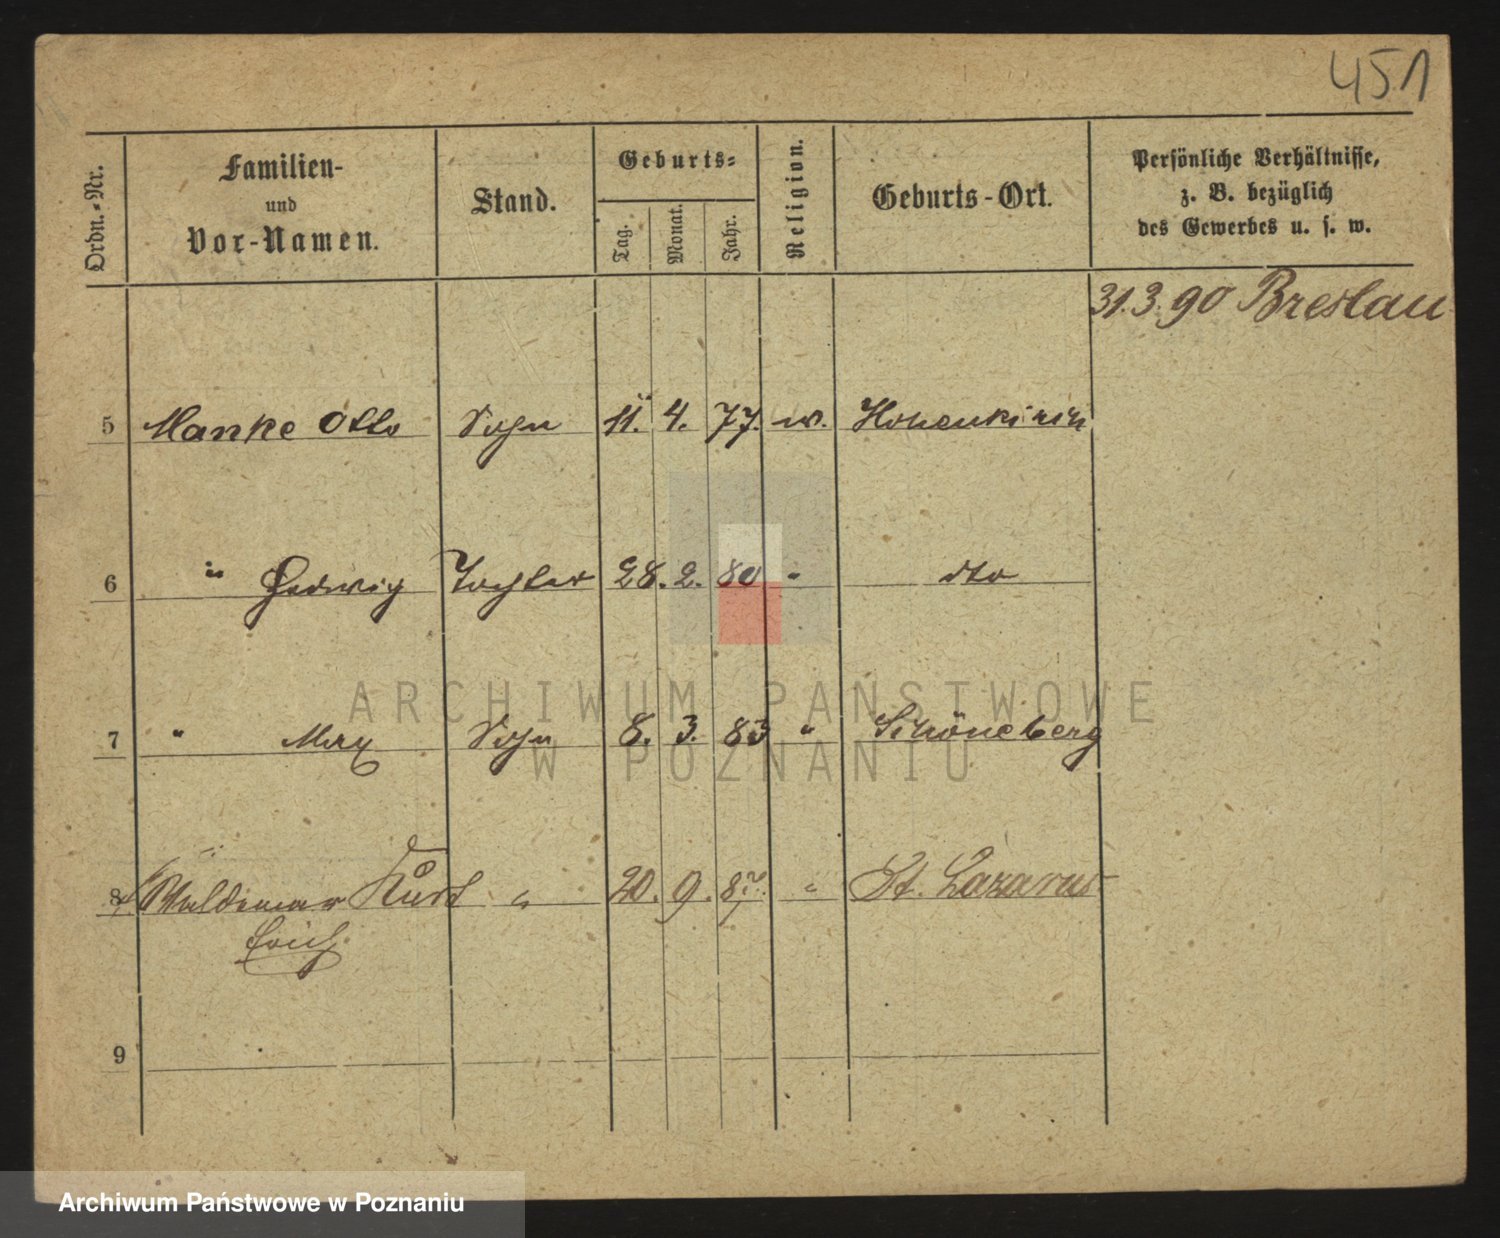 451
Ordn.-Nr.
Familien-
und
Vor-Namen.
Stand.
Geburts-
Tag.
Monat.
Jahr.
Religion.
Geburts-Ort.
Persönliche Verhältnisse,
z. B. bezüglich
des Gewerbes u. s. w.
31.3.90 Breslau
5 Manke Otto Sohn 11. 4. 77. w. Hohenkirch
6 " Hedwig Tochter 28. 2. 80 " dto
7 " Max Sohn 8. 3. 83 " Schöneberg
8 Waldemar Kurt " 20. 9. 87. " St. Lazarus
Erich
9
ARCHIWUM PAŃSTWOWE
W POZNANIU
Archiwum Państwowe w Poznaniu